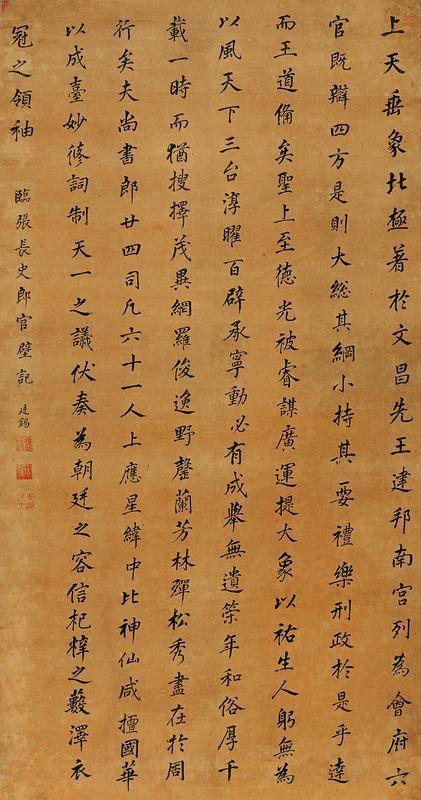 上天垂象北極著於文昌先王建邦南宮列為會府六
官既辯四方是則大總其綱小持其要禮樂刑政於是乎達
而王道備矣聖上至德光被睿謀廣運提大象以祐生人躬無為
以風天下三台淳曜百辟承寧動必有成舉無遺筞年和俗厚千
載一時而猶搜擇茂異網羅俊逸野罄蘭芳林殫松秀盡在於周
行矣夫尚書郎廿四司凡六十一人上應星緯中比神仙咸擅國華
以成臺妙修詞制天一之議伏奏為朝廷之容信杞梓之藪澤衣
冠之領袖
臨張長史郎官壁記 廷錫